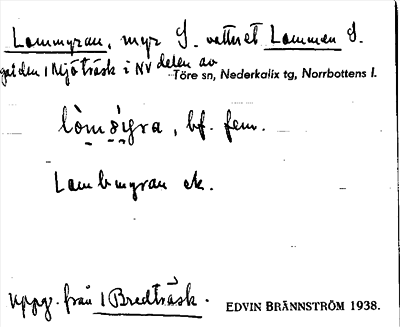 Lommyran, myr S. vattnet Lommen S.
gården 1 Mjöträsk i NV delen av
Töre sn, Nederkalix tg, Norrbottens l.
lòmø̀yra, bf. fem.
Lombmyran ek.
uppg. från 1 Bredträsk.
EDVIN BRÄNNSTRÖM 1938.